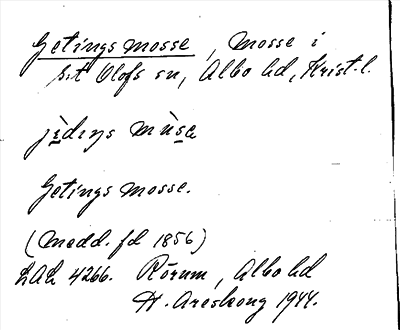 Getings mosse, Mosse i
S:t Olofs sn, Albo hd, Krist. l.
jèdiŋs mùsa
Getings mosse.
(Medd. fd 1856)
LAL 4266. Rörum, Albo hd
H. Areskoug 1944.